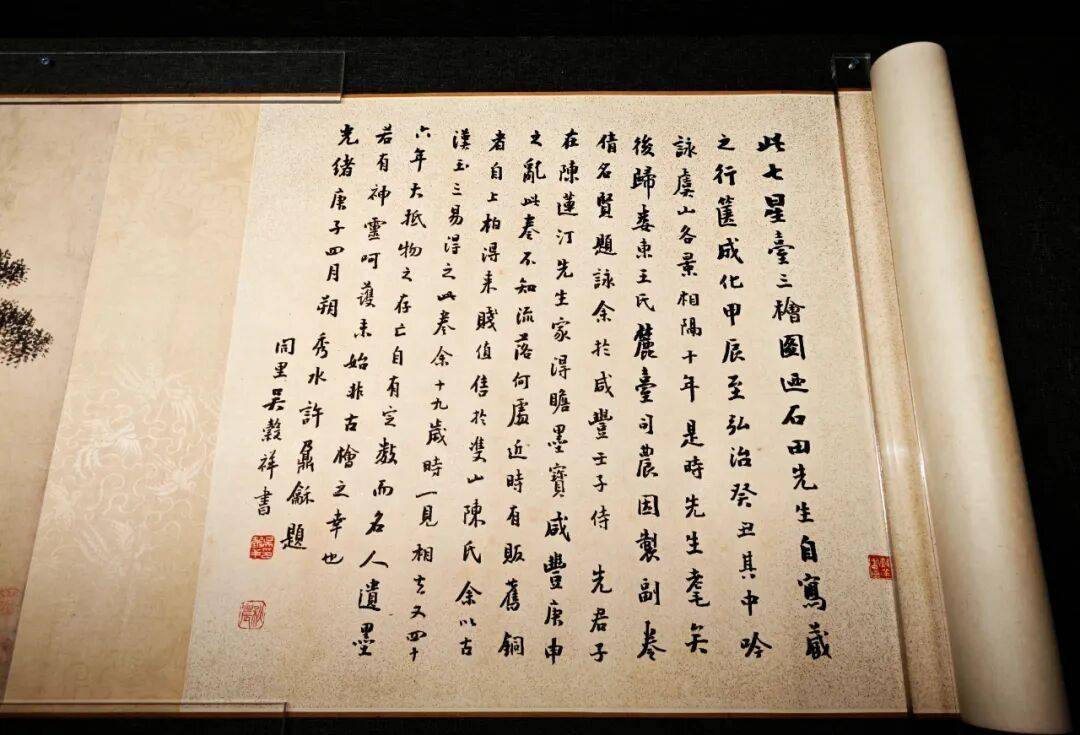 此七星臺三檜圖迺石田先生自寫藏
之行篋成化甲辰至弘治癸丑其中吟
詠虞山各景相隔十年是時先生耄矣
後歸婁東王氏麓臺司農因製副卷
倩名賢題詠余於咸豐壬子侍先君子
在陳蓮汀先生家得瞻墨寶咸豐庚申
之亂此卷不知流落何處近時有販舊銅
者自上柏得來賤值售於雙山陳氏余以古
漢玉三易得之此卷余十九歲時一見相去又四十
六年大抵物之存亡自有定數而名人遺墨
若有神靈呵護未始非古檜之幸也
光緒庚子四月朔秀水許鼐龢題
同里吳穀祥書